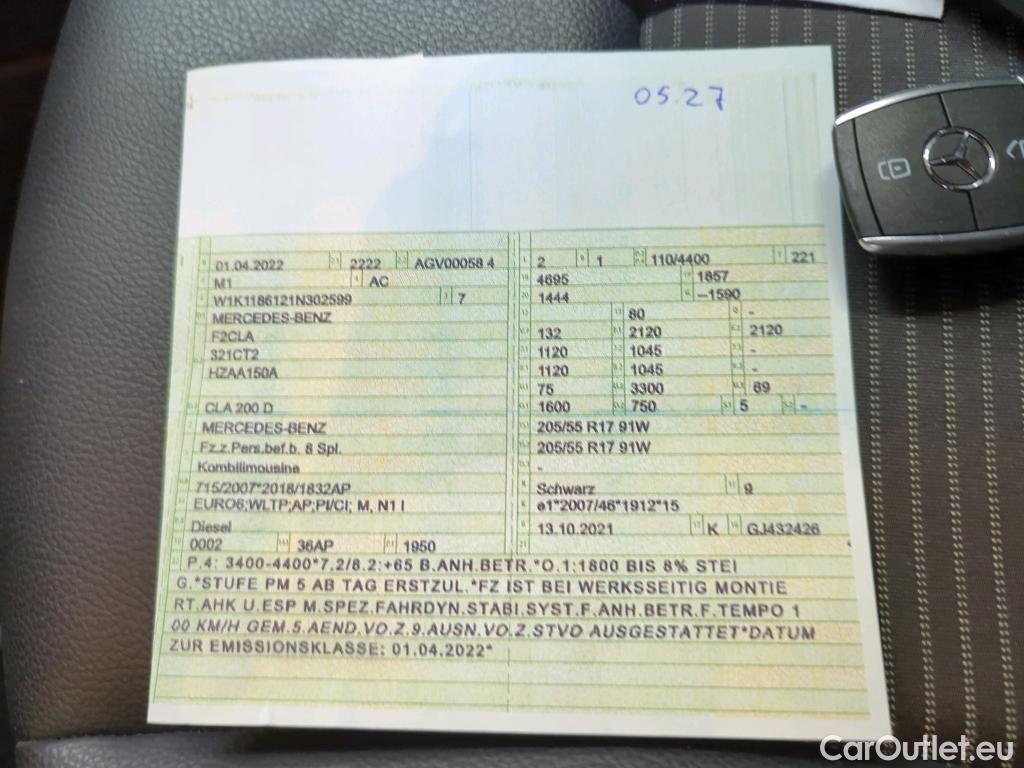 05.27
01.04.2022 2222 AGV00058 4
M1 AC
W1K1186121N302599 7
MERCEDES-BENZ
F2CLA
321CT2
HZAA150A
CLA 200 D
MERCEDES-BENZ
Fz.z.Pers.bef.b. 8 Spl.
Kombilimousine
715/2007*2018/1832AP
EURO6;WLTP;AP;PI/CI; M, N1 I
Diesel
0002 36AP 1950
2 1 110/4400 221
4695 1857
1444 —1590
80 -
132 2120 2120
1120 1045 -
1120 1045 -
75 3300 69
1600 750 5 -
205/55 R17 91W
205/55 R17 91W
-
Schwarz 9
e1*2007/46*1912*15
13.10.2021 K GJ432426
P.4: 3400-4400*7.2/8.2:+65 B.ANH.BETR.*O.1:1800 BIS 8% STEI
G.*STUFE PM 5 AB TAG ERSTZUL.*FZ IST BEI WERKSSEITIG MONTIE
RT.AHK U.ESP M.SPEZ.FAHRDYN.STABI.SYST.F.ANH.BETR.F.TEMPO 1
00 KM/H GEM.5.AEND.VO.Z.9.AUSN.VO.Z.STVO AUSGESTATTET*DATUM
ZUR EMISSIONSKLASSE: 01.04.2022*
CarOutlet.eu